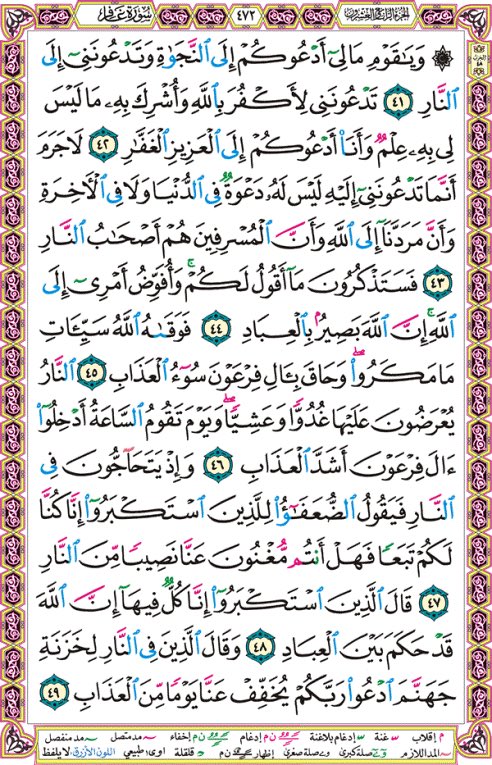 الجزء الرابع والعشرون ٤٧٢ سورة غافر
۞ وَيَٰقَوْمِ مَا لِىٓ أَدْعُوكُمْ إِلَى ٱلنَّجَوٰةِ وَتَدْعُونَنِىٓ إِلَى
ٱلنَّارِ ٤١ تَدْعُونَنِى لِأَكْفُرَ بِٱللَّهِ وَأُشْرِكَ بِهِۦ مَا لَيْسَ
لِى بِهِۦ عِلْمٌ وَأَنَا۠ أَدْعُوكُمْ إِلَى ٱلْعَزِيزِ ٱلْغَفَّٰرِ ٤٢ لَا جَرَمَ
أَنَّمَا تَدْعُونَنِىٓ إِلَيْهِ لَيْسَ لَهُۥ دَعْوَةٌ فِى ٱلدُّنْيَا وَلَا فِى ٱلْءَاخِرَةِ
وَأَنَّ مَرَدَّنَآ إِلَى ٱللَّهِ وَأَنَّ ٱلْمُسْرِفِينَ هُمْ أَصْحَٰبُ ٱلنَّارِ
٤٣ فَسَتَذْكُرُونَ مَآ أَقُولُ لَكُمْ ۚ وَأُفَوِّضُ أَمْرِىٓ إِلَى
ٱللَّهِ ۚ إِنَّ ٱللَّهَ بَصِيرٌۢ بِٱلْعِبَادِ ٤٤ فَوَقَىٰهُ ٱللَّهُ سَيِّـَٔاتِ
مَا مَكَرُوا۟ ۖ وَحَاقَ بِـَٔالِ فِرْعَوْنَ سُوٓءُ ٱلْعَذَابِ ٤٥ ٱلنَّارُ
يُعْرَضُونَ عَلَيْهَا غُدُوًّا وَعَشِيًّا ۖ وَيَوْمَ تَقُومُ ٱلسَّاعَةُ أَدْخِلُوٓا۟
ءَالَ فِرْعَوْنَ أَشَدَّ ٱلْعَذَابِ ٤٦ وَإِذْ يَتَحَآجُّونَ فِى
ٱلنَّارِ فَيَقُولُ ٱلضُّعَفَٰٓؤُا۟ لِلَّذِينَ ٱسْتَكْبَرُوٓا۟ إِنَّا كُنَّا
لَكُمْ تَبَعًا فَهَلْ أَنتُم مُّغْنُونَ عَنَّا نَصِيبًا مِّنَ ٱلنَّارِ
٤٧ قَالَ ٱلَّذِينَ ٱسْتَكْبَرُوٓا۟ إِنَّا كُلٌّ فِيهَآ إِنَّ ٱللَّهَ
قَدْ حَكَمَ بَيْنَ ٱلْعِبَادِ ٤٨ وَقَالَ ٱلَّذِينَ فِى ٱلنَّارِ لِخَزَنَةِ
جَهَنَّمَ ٱدْعُوا۟ رَبَّكُمْ يُخَفِّفْ عَنَّا يَوْمًا مِّنَ ٱلْعَذَابِ ٤٩
م إقلاب غنة إدغام بلاغنة ن م إدغام ن م إخفاء مد متصل مد منفصل
المد اللازم صلة كبرى صلة صغرى إظهار ن م قلقلة اوى: طبيعي اللون الأزرق: لا يلفظ